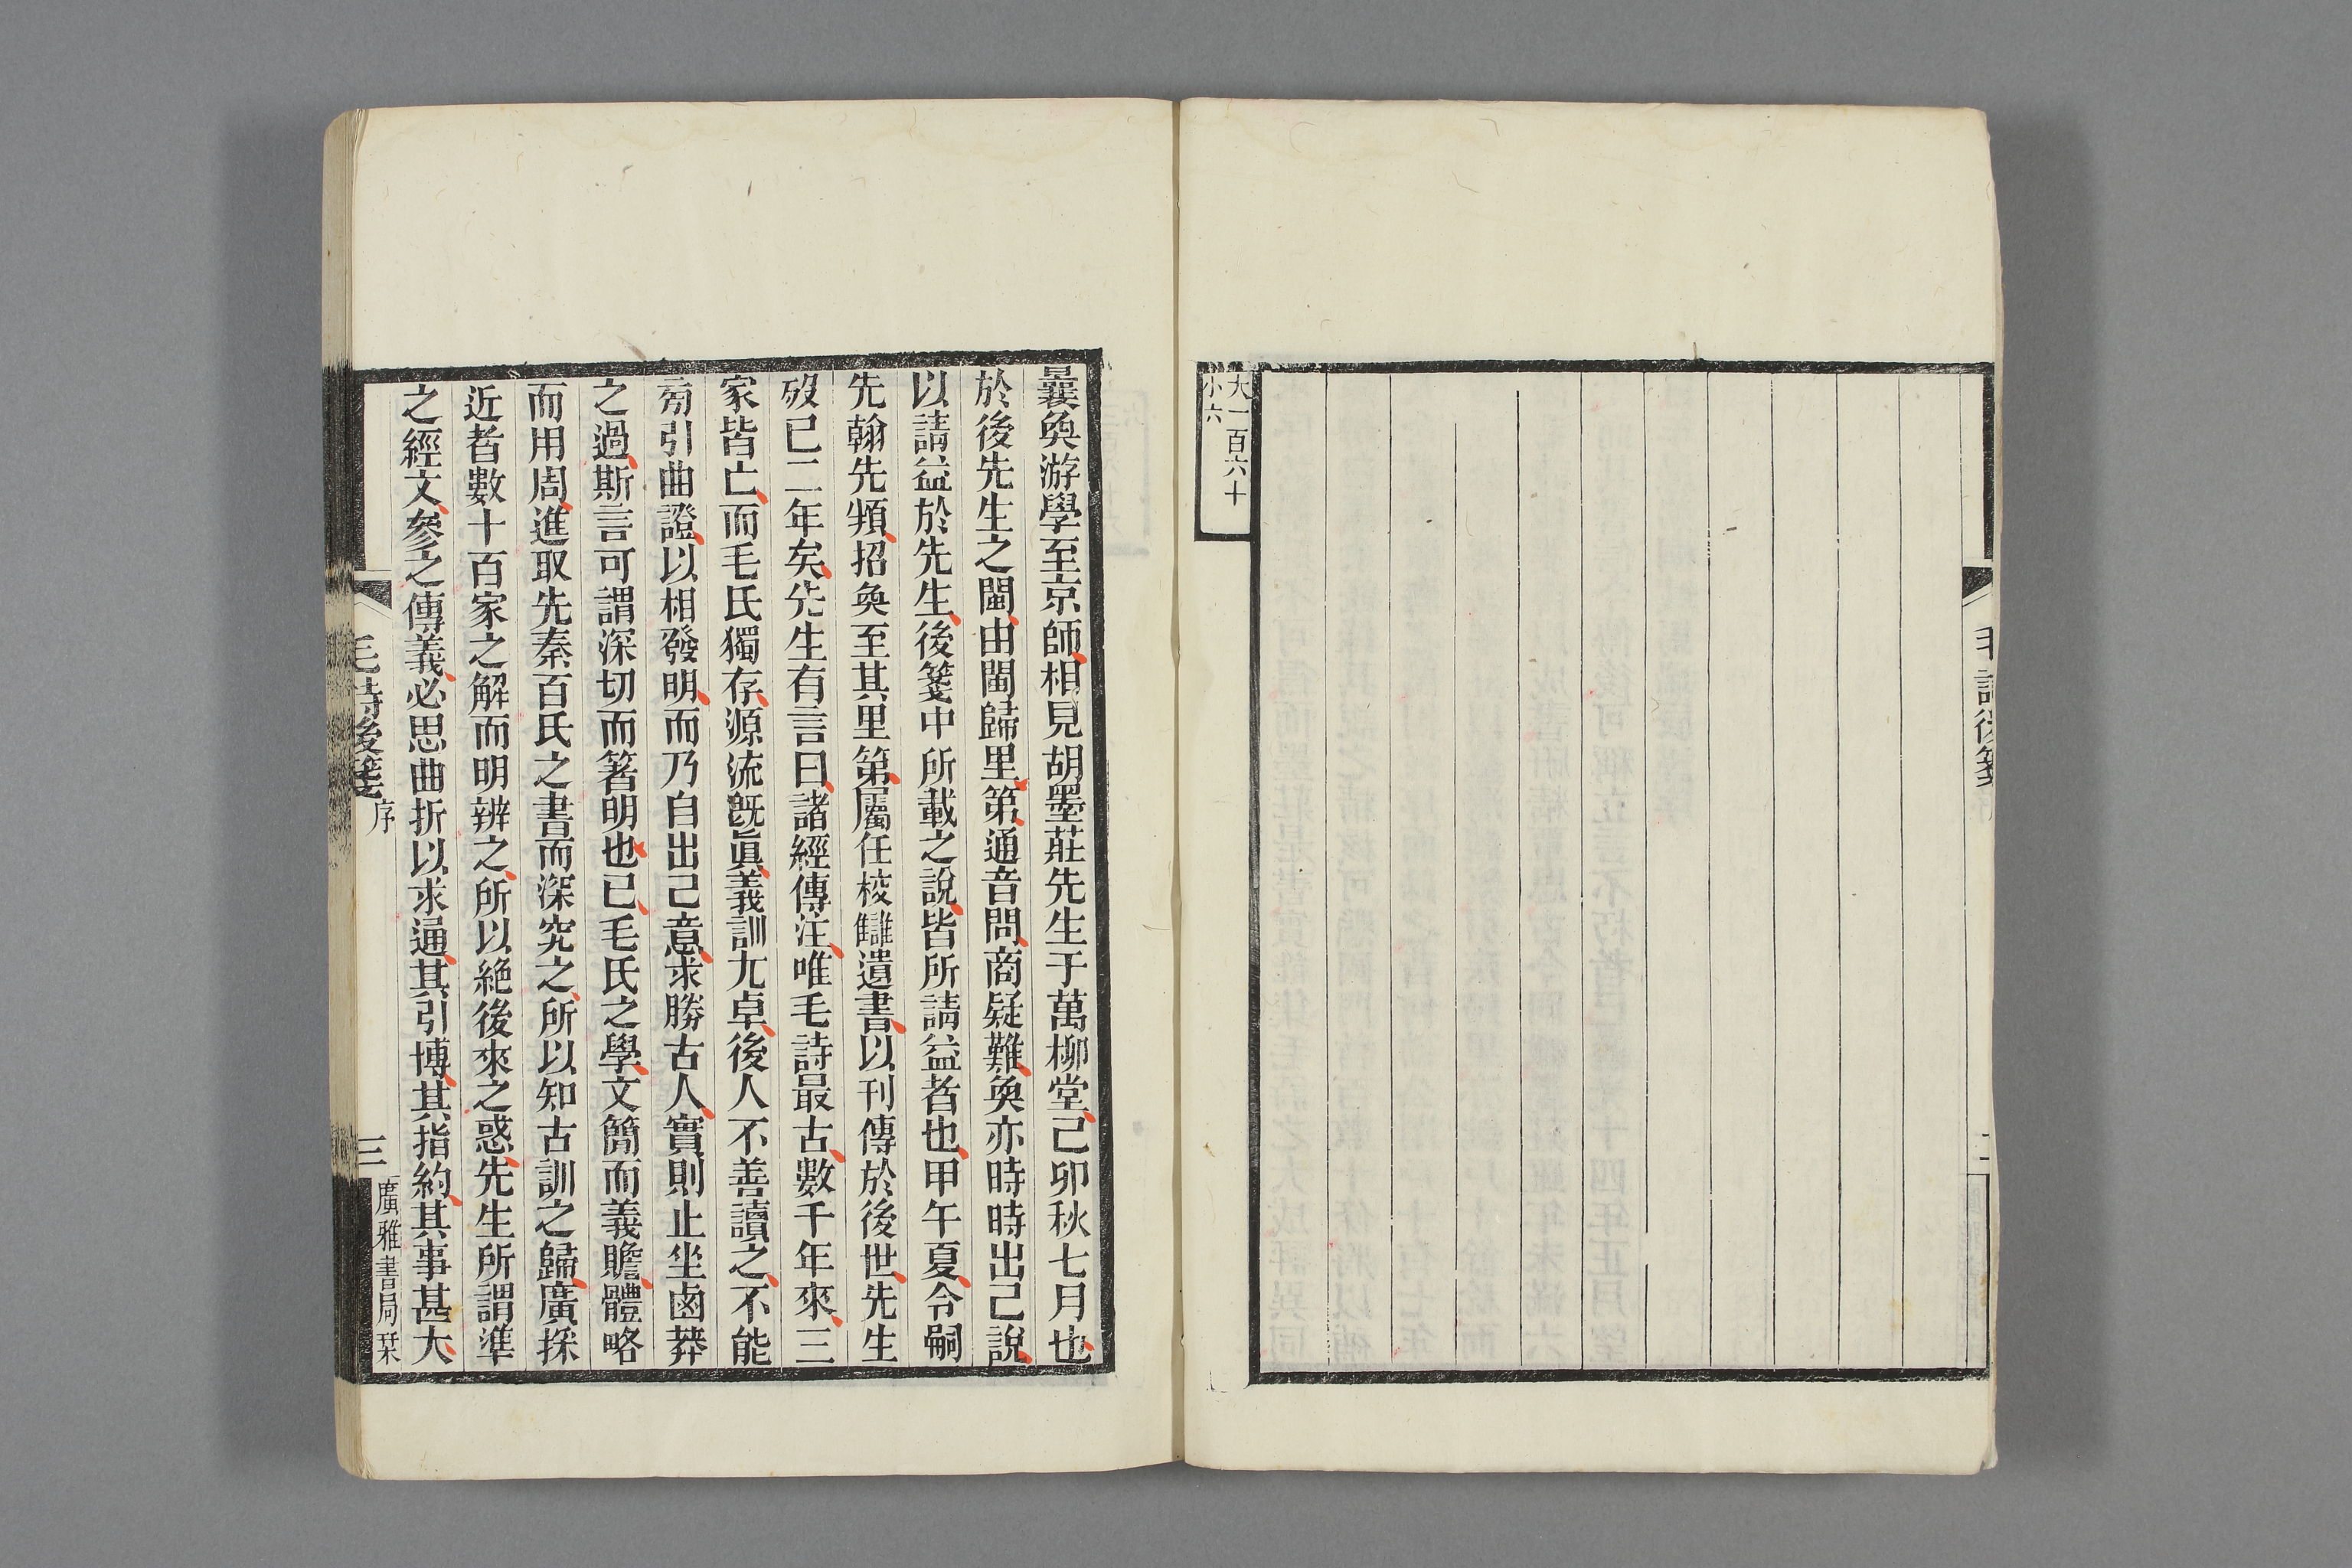 大一百六十
小六
毛詩後箋
曩奐游學至京師相見胡墨莊先生于萬柳堂己卯秋七月也
於後先生之閩由閩歸里第通音問商疑難奐亦時時出己說
以請益於先生後箋中所載之說皆所請益者也甲午夏令嗣
先翰先頫招奐至其里第屬任校讎遺書以刊傳於後世先生
歿已二年矣先生有言曰諸經傳注唯毛詩最古數千年來三
家皆亡而毛氏獨存源流旣眞義訓尢卓後人不善讀之不能
㫄引曲證以相發明而乃自出己意求勝古人實則止坐鹵莽
之過斯言可謂深切而箸明也已毛氏之學文簡而義贍體略
而用周進取先秦百氏之書而深究之所以知古訓之歸廣採
近者數十百家之解而明辨之所以絕後來之惑先生所謂準
之經文參之傳義必思曲折以求通其引博其指約其事甚大
毛詩後箋 序 三 廣雅書局栞